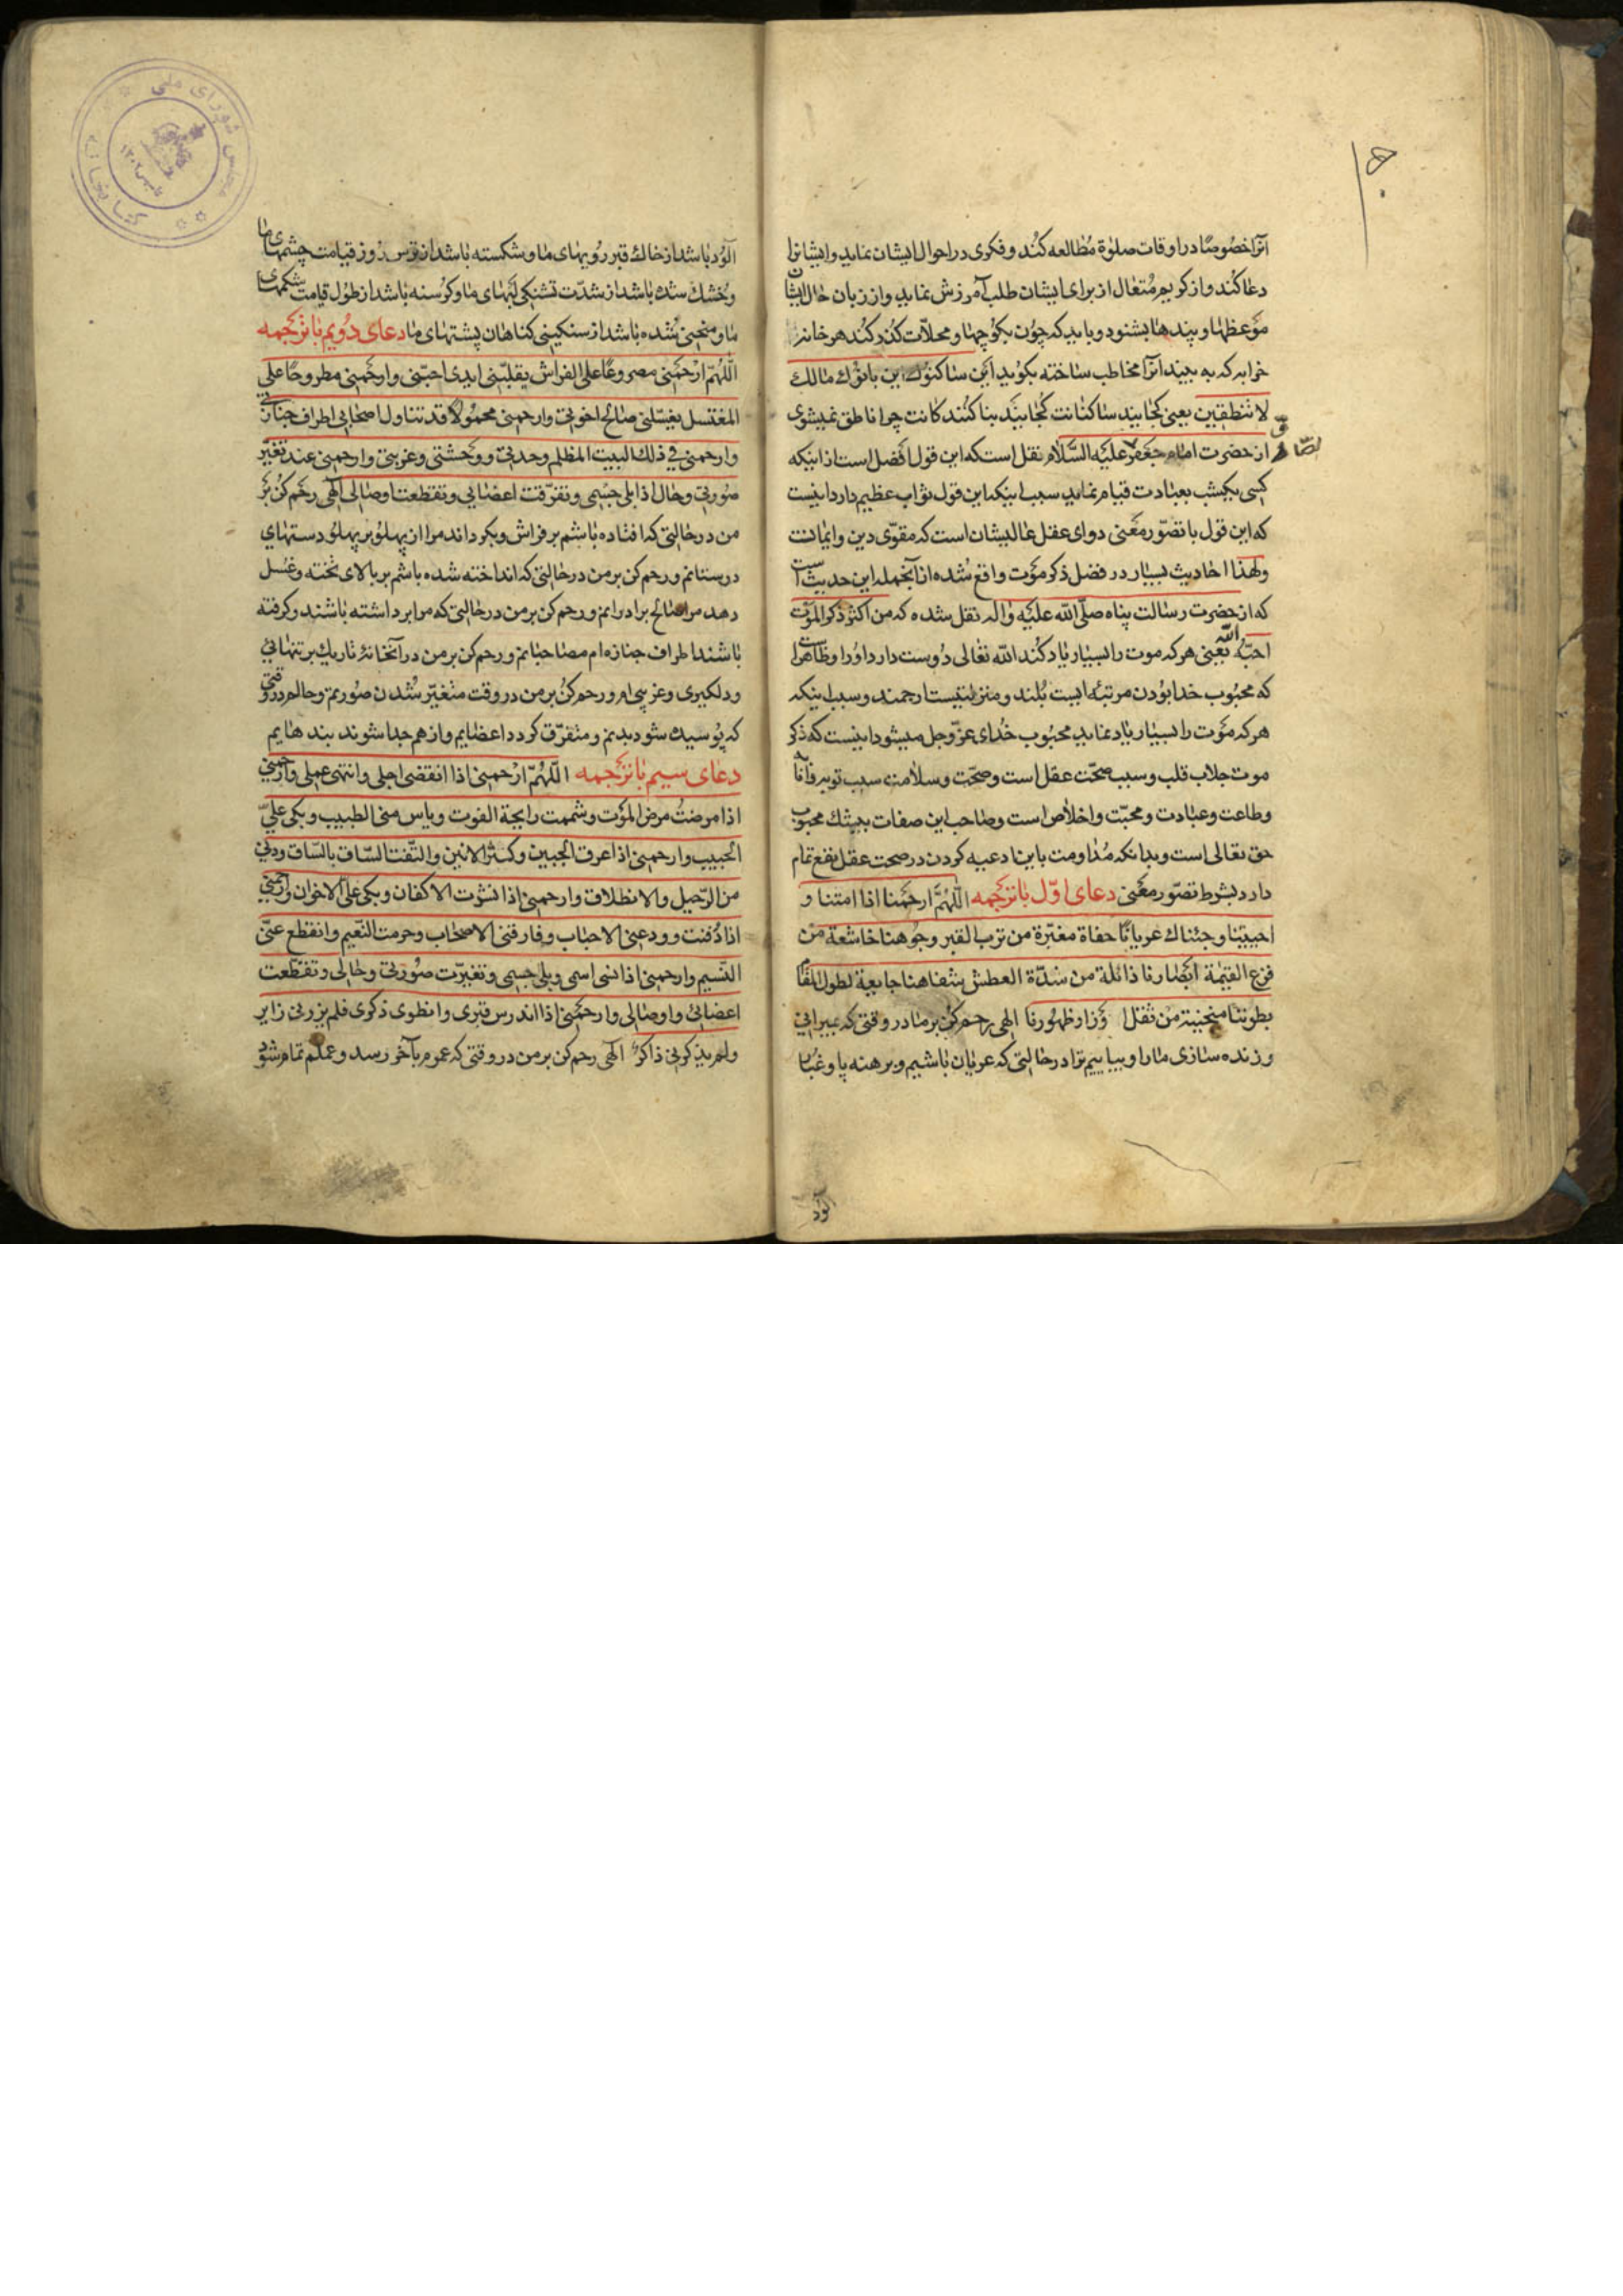 آنرا خصوصًا در اوقات صلوة مطالعه کند و فکری در احوال ایشان نماید و ایشانرا
دعا کند و از کریم متعال از برای ایشان طلب آمرزش نماید و از زبان حال ایشان
موعظها و پندها بشنود و باید که چون بکوچها و محلات کذر کند هر خانهٔ
خرابه که به بیند آنرا مخاطب ساخته بکوید این ساکنوك این بانوك مالك
لا تنطقین یعنی کجایند ساکنانت کجایند بنا کنندکانت چرا ناطق نمیشوی
از حضرت امام جعفر علیه السلام نقل است که این قول افضل است از اینکه
الصّادق
کسی یکشب بعبادت قیام نماید سبب اینکه این قول ثواب عظیم دارد اینست
که این قول با تصوّر معنی دوای عقل عالیشان است که مقوّی دین و ایمانت
ولهذا احادیث بسیار در فضل ذکر موت واقع شده از آنجمله این حدیث است
که از حضرت رسالت پناه صلّی الله علیه واله نقل شده که من اکثر ذکر الموت
احبّه الله یعنی هر که موت را بسیار یاد کند الله تعالی دوست دارد او را و ظاهرا
که محبوب خدا بودن مرتبه ایست بلند و منزلتیست ارجمند و سبب اینکه
هر که موت را بسیار یاد نماید محبوب خدای عزّ وجل میشود اینست که ذکر
موت جلاب قلب و سبب صحّت عقل است و صحّت و سلامت سبب توبه و انابه
وطاعت وعبادت ومحبّت واخلاص است وصاحب این صفات بیشك محبوب
حق تعالی است و بدانکه مداومت باین ادعیه کردن در صحت عقل نفع تمام
دارد بشرط تصوّر معنی دعای اوّل با ترجمه اللّهُمَّ ارحمنا اذا امتنا و
احییتنا وجئناك عریانًا حفاة مغبّرة من ترب القبر وجوهنا خاشعة من
فزع القیمة ابصارنا ذائلة من شدّة العطش شفاهنا جایعة لطول القیام
بطوننا منحنیة من ثقل اوزار ظهورنا الهی رحم کن بر ما در وقتی که بمیرانی
و زنده سازی ما را و بیاییم ترا در حالتی که عریان باشیم و برهنه پا و غبار
آلود
آلود باشد از خاك قبر رویهای ما و شکسته باشد از ترس روز قیامت چشمهای ما
وخشك شده باشد از شدّت تشنکی لبهای ما و کرسنه باشد از طول قیامت شکمهای
ما و منحنی شده باشد از سنکینی کناهان پشتهای ما دعای دویم با ترجمه
اللّهُمّ ارحمنی مصروعًا علی الفراش یقلّبنی ایدی احبّتی وارحمنی مطروحًا علی
المغتسل یغسّلنی صالح اخوتی وارحمنی محمولًا قد تناول اصحابی اطراف جنازتی
وارحمنی فی ذلك البیت المظلم وحدتی ووحشتی وغربتی وارحمنی عند تغیّر
صورتی وحال اذا بلی جسمی وتفرّقت اعضایی وتقطعت اوصالی الهی رحم کن بر
من در حالتی که افتاده باشم بر فراش و بکرداند مرا از پهلو بر پهلو دستهای
درستانم و رحم کن بر من در حالتی که انداخته شده باشم بر بالای تخته وغسل
دهد مرا صالح برادرانم و رحم کن بر من در حالتی که مرا برداشته باشند و کرفته
باشند اطراف جنازه ام مصاحبانم و رحم کن بر من در آنخانهٔ تاریك بر تنهائی
ودلکیری وغریبی ام و رحم کن بر من در وقت متغیّر شدن صورتم وحالم در وقتی
که پوسیده شود بدنم و متفرّق کردد اعضایم و از هم جدا شوند بندهایم
دعای سیم با ترجمه اللّهُمّ ارحمنی اذا انقضی اجلی وانتهی عملی وارحمنی
اذا مرضتُ مرض الموت وشممت رایحة الفوت ویاس منی الطبیب وبکی علیّ
الحبیب وارحمنی اذا عرق الجبین وکثر الانین والتفّت السّاق بالسّاق ودنی
من الرّحیل والانطلاق وارحمنی اذا نشرت الاکفان وبکی علیّ الاخوان وارحمنی
اذا دُفنت وودعنی الاحباب وفارقنی الاصحاب وحرمت النّعیم وانقطع عنّی
النّسیم وارحمنی اذا نسی اسمی وبلی جسمی وتغیّرت صورتی وحالی وتقطّعت
اعضائی واوصالی وارحمنی اذا اندرس قبری وانطوی ذکری فلم یزرنی زایر
ولم یذکرنی ذاکرٌ الهی رحم کن بر من در وقتی که عمرم بآخر رسد و عملم تمام شود
کتابخانه مجلس شورای ملی